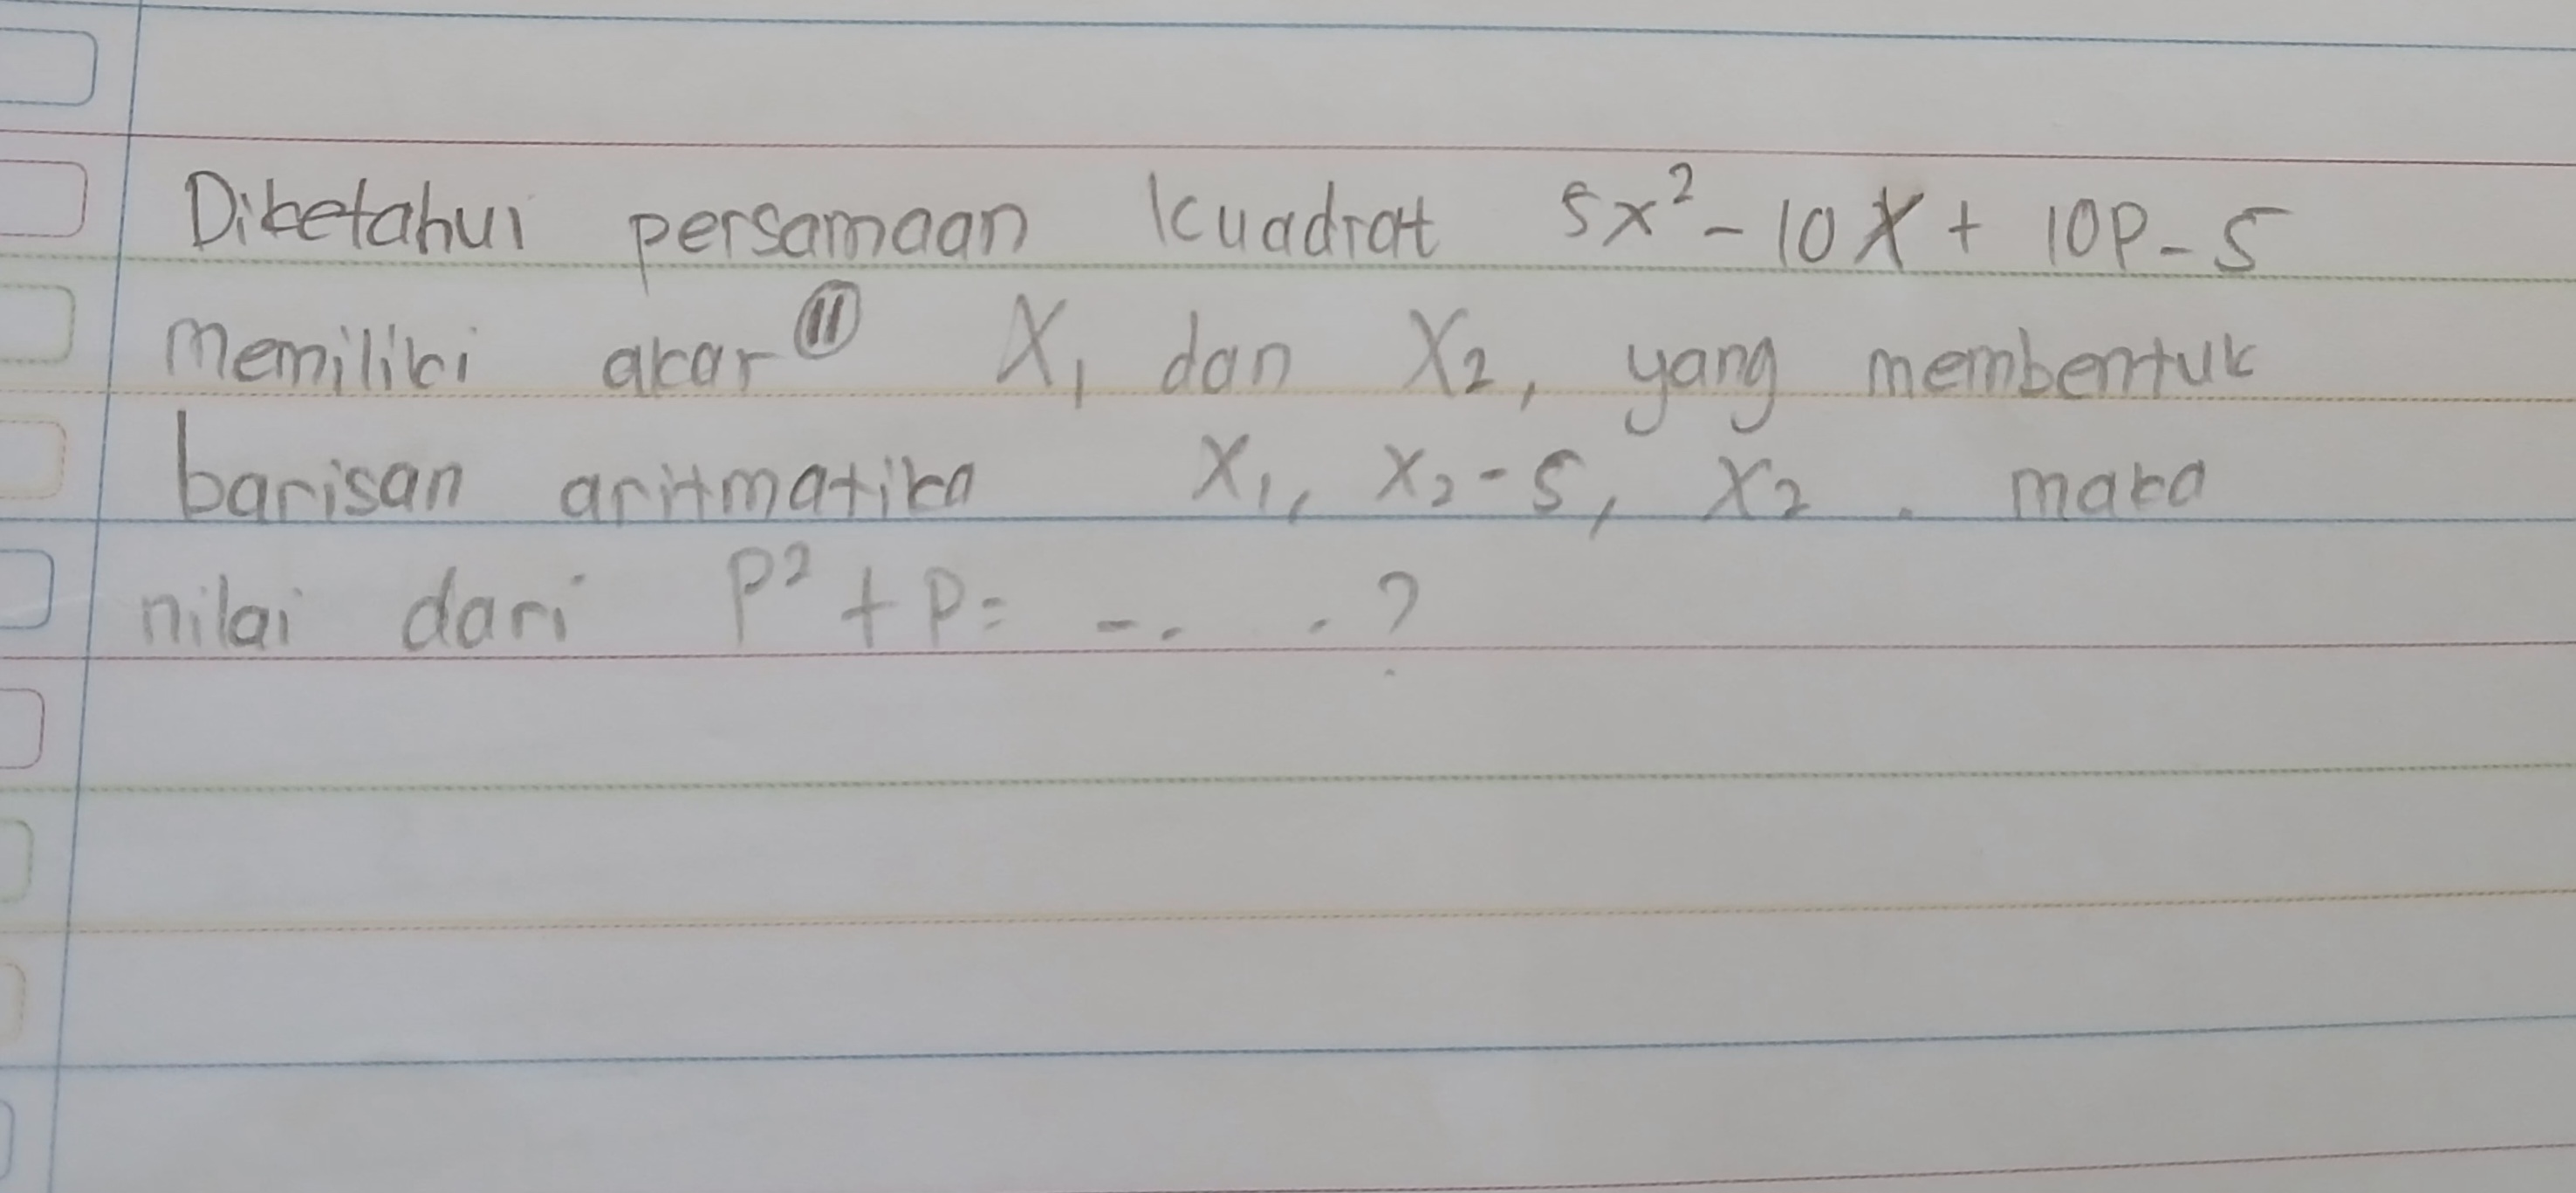 Diketahui persamaan kuadrat 5x² - 10x + 10p - 5
memiliki akar" X₁ dan X₂, yang membentuk
barisan aritmatika X₁, X₂-5, X₂. maka
nilai dari p² + p = .... ?